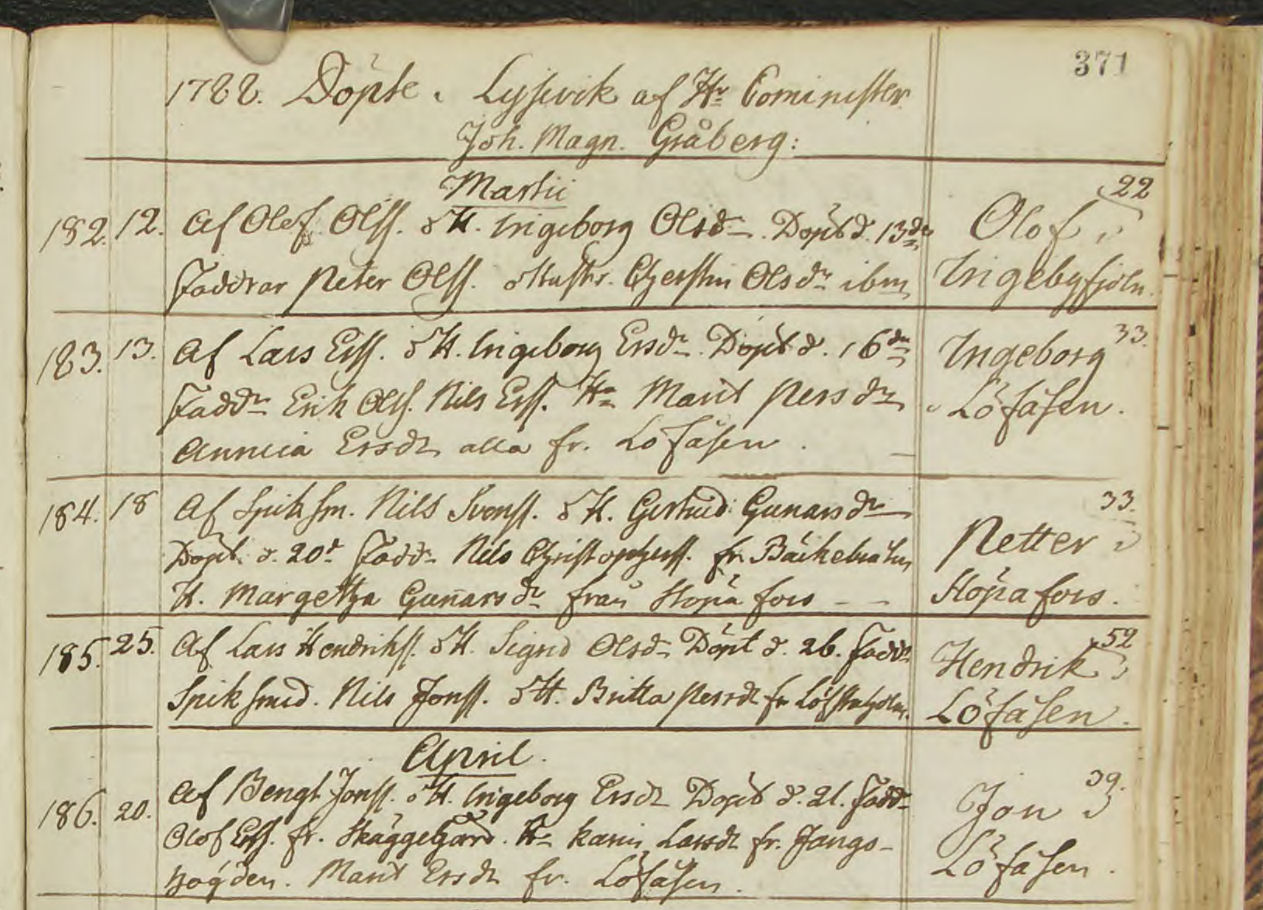 371
1788. Döpte i Lysevik af Hr Cominister
Joh. Magn. Gråberg:
Martii
182. 12. af Olof Olss. o H. Ingeborg Olsdr Döpt d. 13de
Faddrar Peter Olss. o Hustr. Cherstin Olsdr ibm
22
Olof i
Ingebyfjöln.
183. 13. af Lars Erss. o H. Ingeborg Ersdr Döpt d. 16de
Faddr Erik Olss. Nils Erss. Hu Marit Persdr
Annicia Ersdr alla fr. Löfåsen.
33.
Ingeborg
i Löfåsen.
184. 18 af Spiksm. Nils Svenss. o H. Gertrud Gunarsdr
Döpt. d. 20de Faddr Nils Christophers. fr.
H. Margetha Gunarsdr från Höpafors
33.
Petter i
Höpafors.
185. 25. af Lars Hendrikss. o H. Sigrid Olsdr Döpt d. 26. Faddr
Spiksmed. Nils Jonss. o H. Britta Persdr fr Löfstaholm.
52
Hendrik i
Löfåsen.
April.
186. 20. af Bengt Jonss. o H. Ingeborg Ersdr Döpt d. 21. Fadd-
Olof Erss. fr. Skäggegård. Hu Karin Larsdr fr. Fangs-
Bögden. Marit Ersdr fr. Löfåsen.
39.
Jon i
Löfåsen.